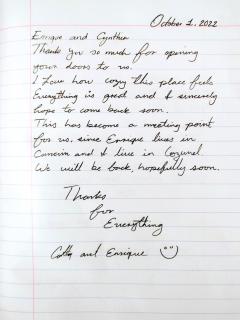 October 1, 2022
Enrique and Cynthia
Thank you so much for opening
your doors to us.
I Love how cozy this place feels
Everything is good and I sincerely
hope to come back soon.
This has become a meeting point
for us, since Enrique lives in
Cancun and I live in Cozumel.
We will be back, hopefully soon.
Thanks
for
Everything
and Enrique